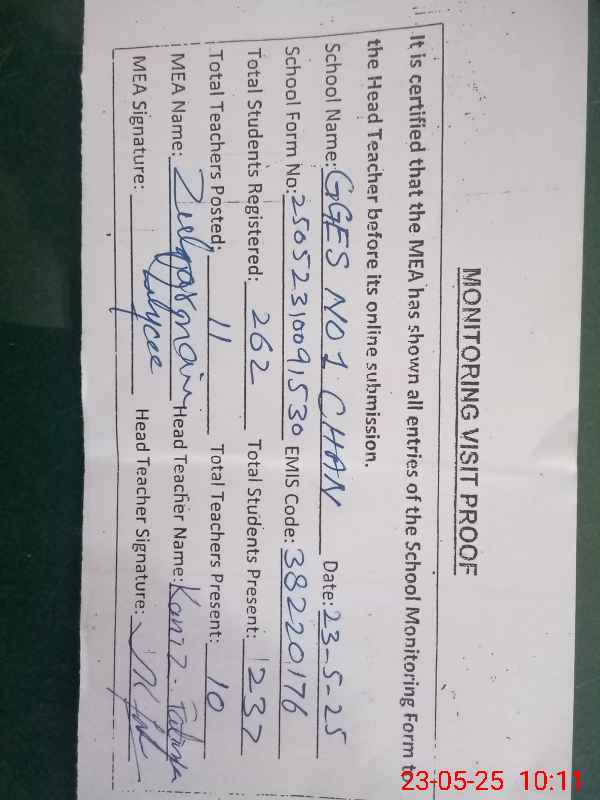 MONITORING VISIT PROOF
It is certified that the MEA has shown all entries of the School Monitoring Form to
the Head Teacher before its online submission.
School Name: GGES NO 1 CHAN Date: 23-5-25
School Form No: 25052310091530 EMIS Code: 38220176
Total Students Registered: 262 Total Students Present: 237
Total Teachers Posted: 11 Total Teachers Present: 10
MEA Name: Zulqarnain Head Teacher Name: Kaniz Fatima
MEA Signature: Head Teacher Signature:
23-05-25 10:11